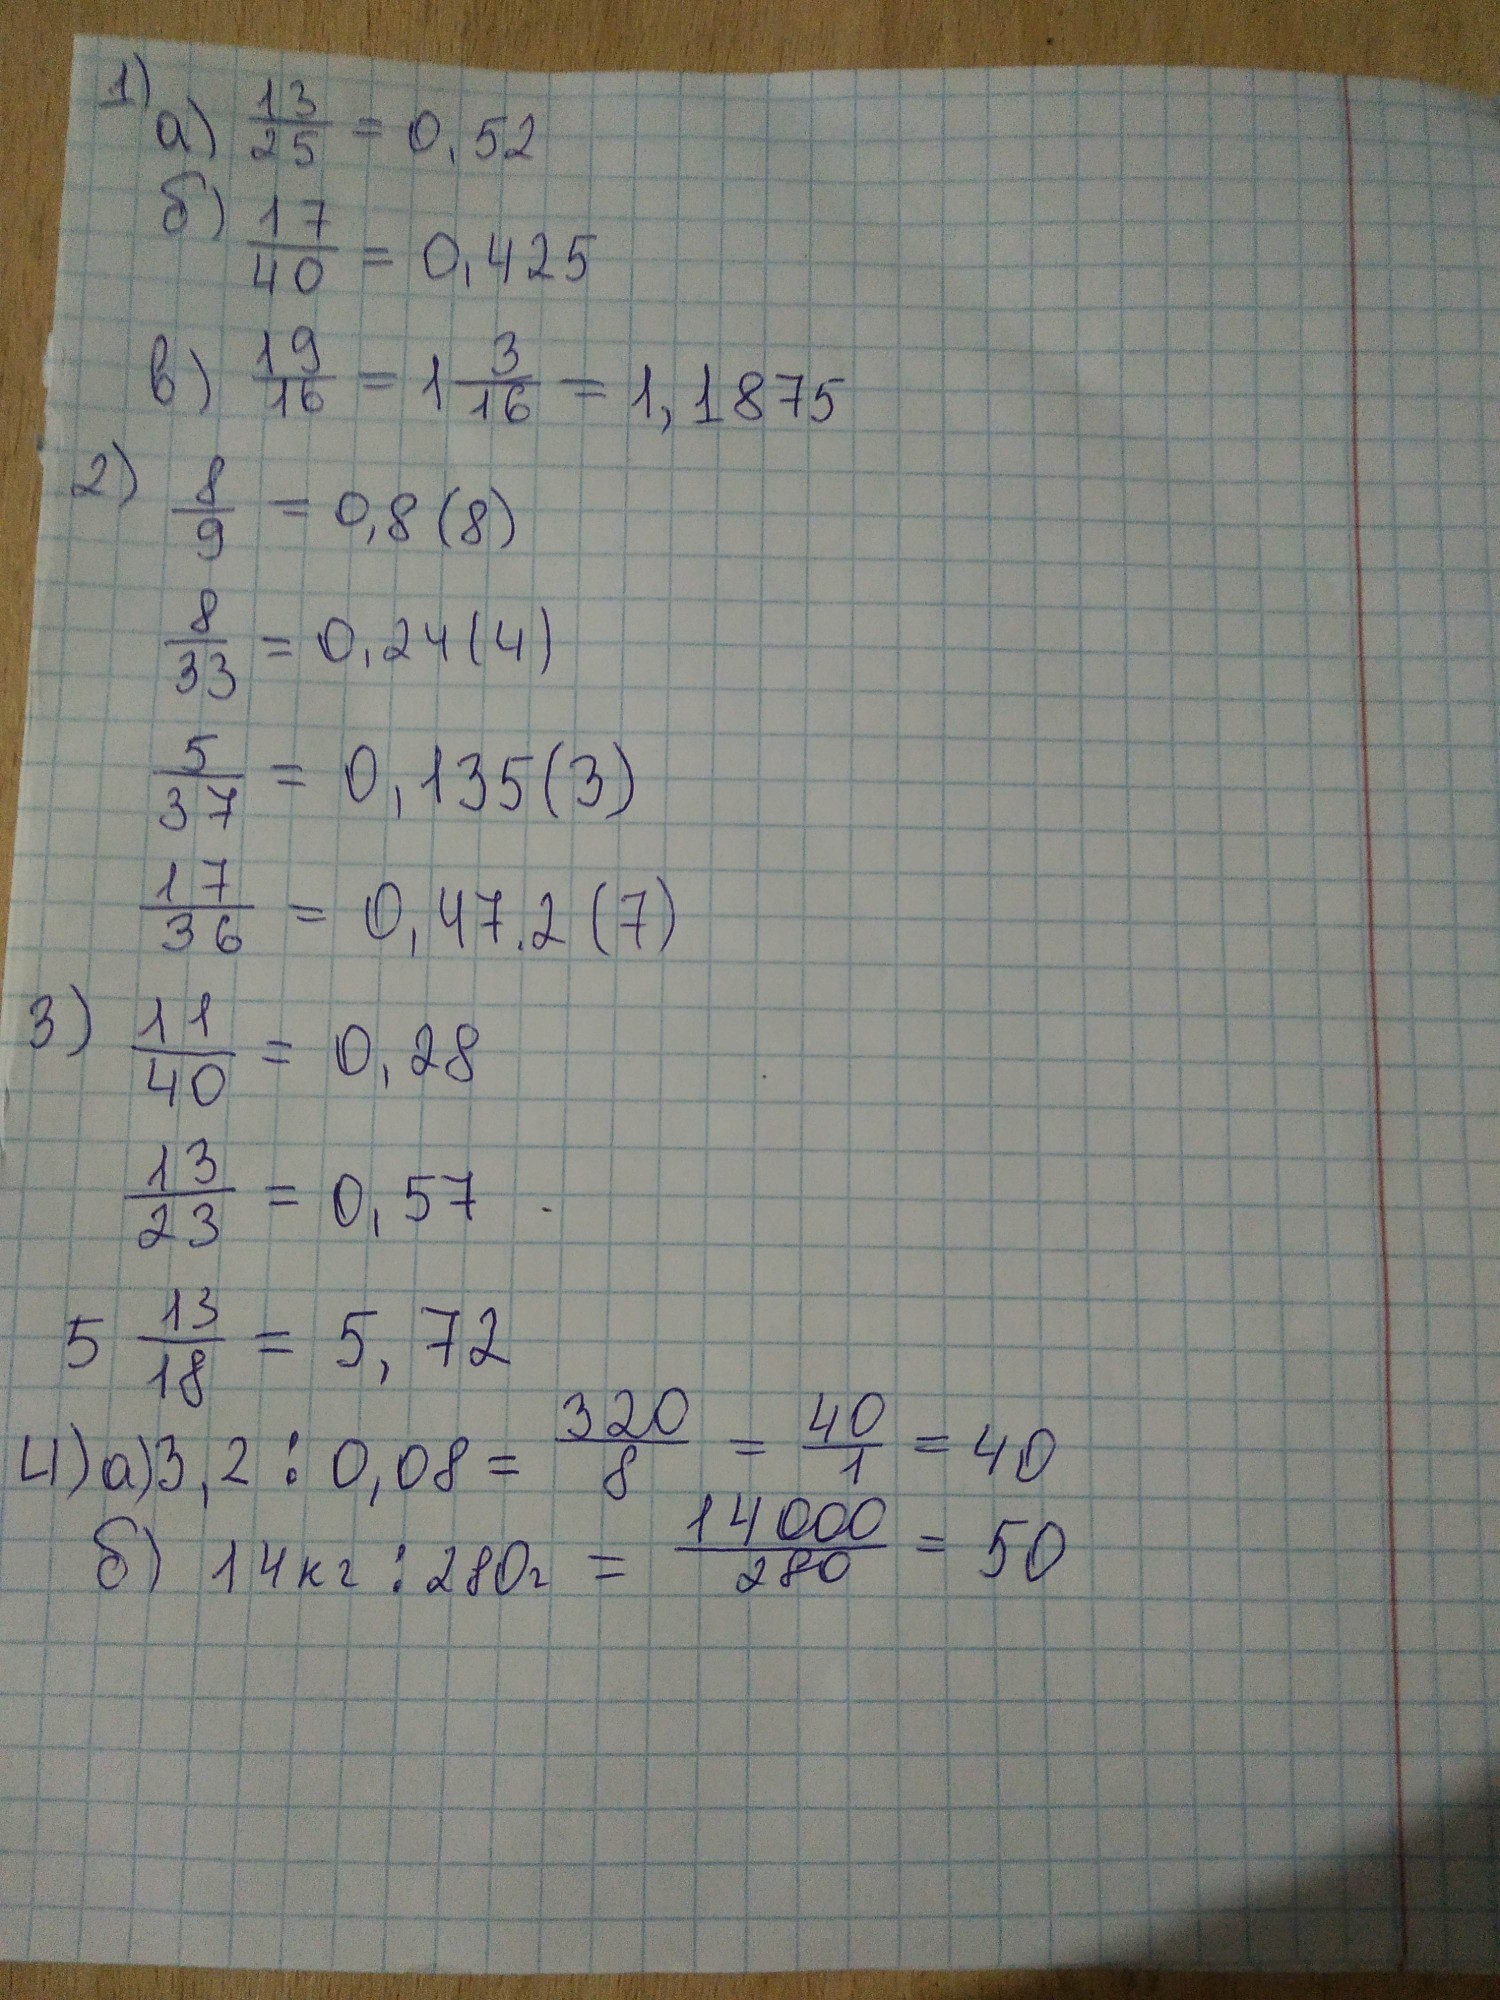 1)
а) 13/25 = 0,52
б) 17/40 = 0,425
в) 19/16 = 1 3/16 = 1,1875
2) 8/9 = 0,8(8)
8/33 = 0,24(4)
5/37 = 0,135(3)
17/36 = 0,47.2(7)
3) 11/40 = 0,28
13/23 = 0,57
5 13/18 = 5,72
4) а) 3,2 : 0,08 = 320/8 = 40/1 = 40
б) 14кг : 280г = 14000/280 = 50